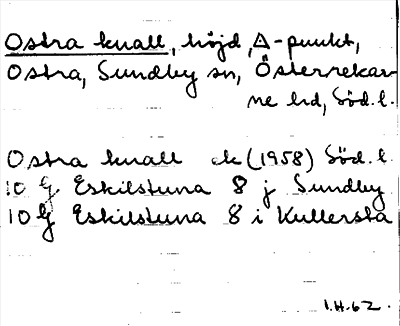 Ostra knall, höjd, Δ-punkt,
Ostra, Sundby sn, Österrekar-
ne hd, Söd.l.
Ostra knall ek (1958) Söd.l.
10 G Eskilstuna 8 j Sundby
10 G Eskilstuna 8 i Kullersta
I.H.62.